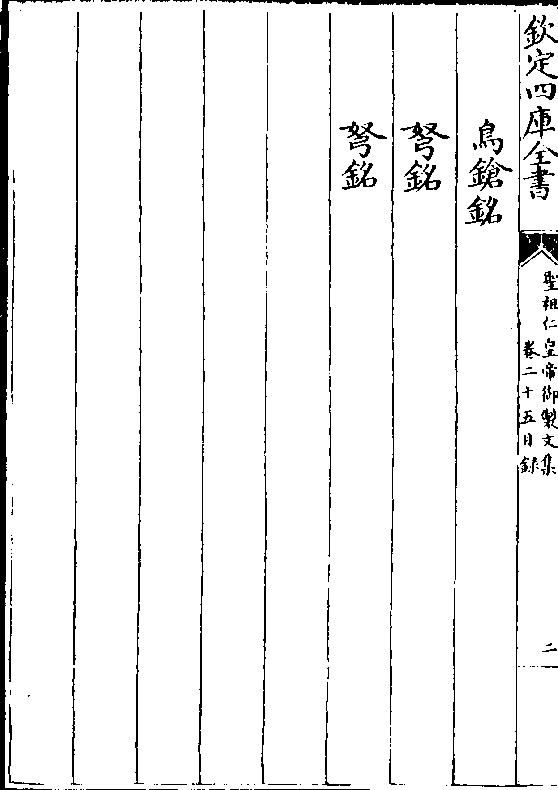 欽定四庫全書
聖祖仁皇帝御製文集
卷二十五目錄
二
鳥鎗銘
弩銘
弩銘